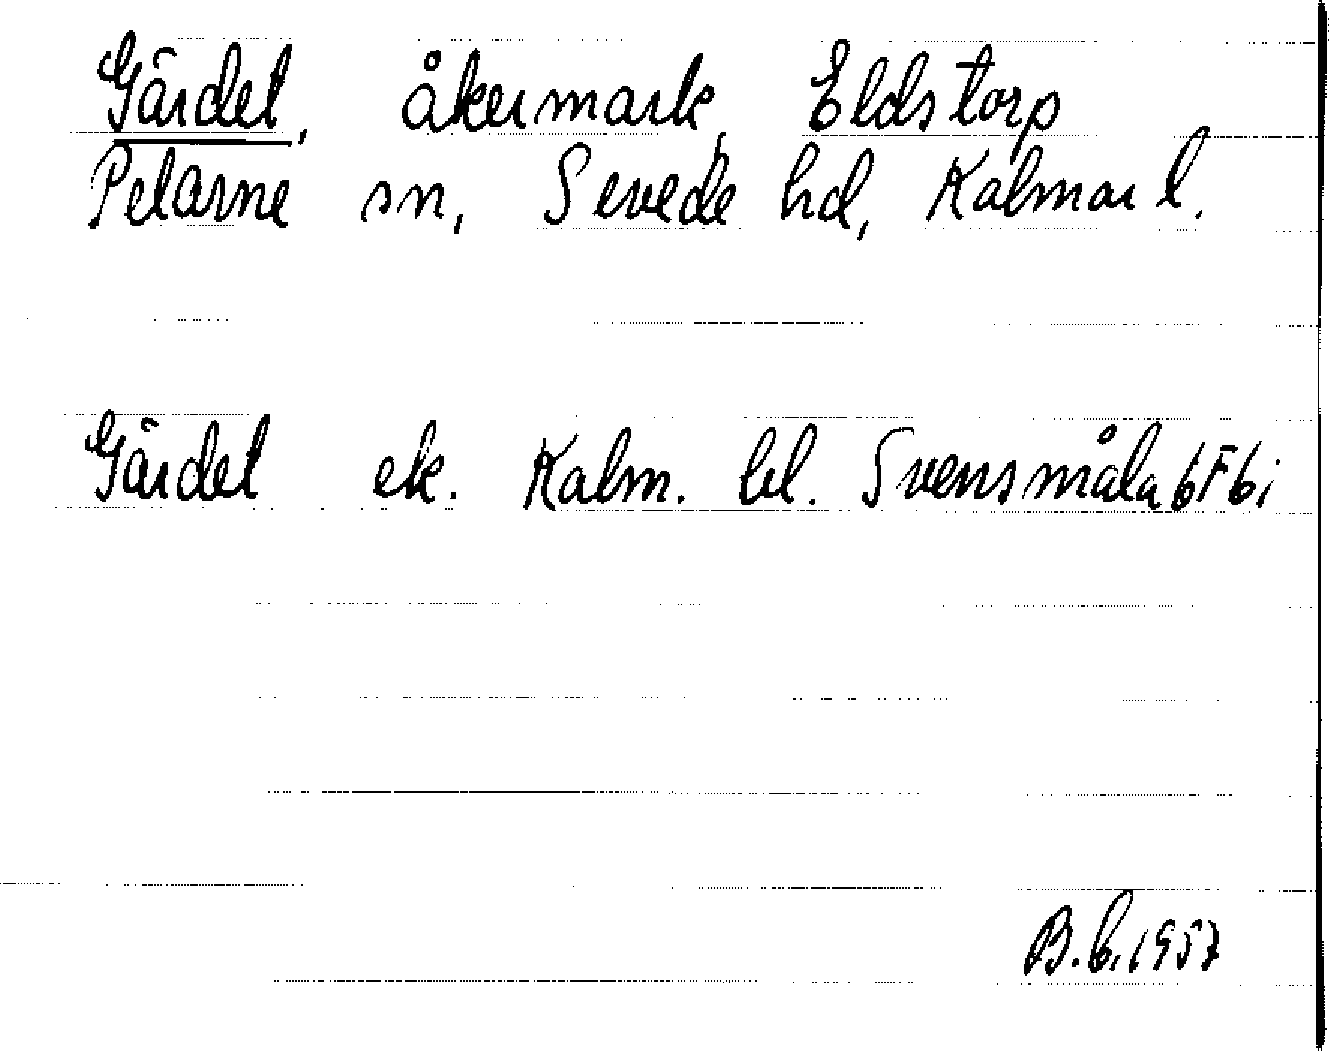 Gärdet, åkermark, Eldstorp
Pelarne sn, Sevede hd, Kalmar l.
Gärdet ek. Kalm. bl. Svensmåla 6F6i
B.L. 1957